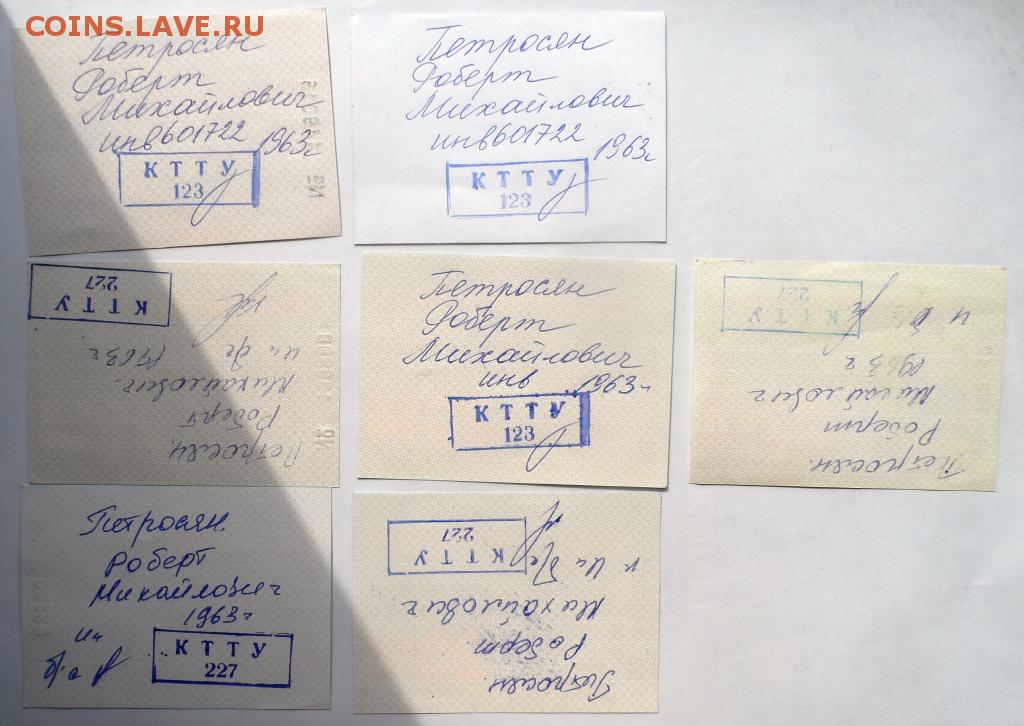 COINS.LAVE.RU
Петросян
Роберт
Михайлович
инв601722 1963г
КТТУ
123
№
Петросян
Роберт
Михайлович
инв601722 1963г
КТТУ
123
Петросян
Роберт
Михайлович
1963г
КТТУ
227
Петросян
Роберт
Михайлович
инв 1963г
КТТУ
123
Петросян
Роберт
Михайлович
1963г
КТТУ
227
Петросян
Роберт
Михайлович
1963г
КТТУ
227
Петросян
Роберт
Михайлович
КТТУ
227